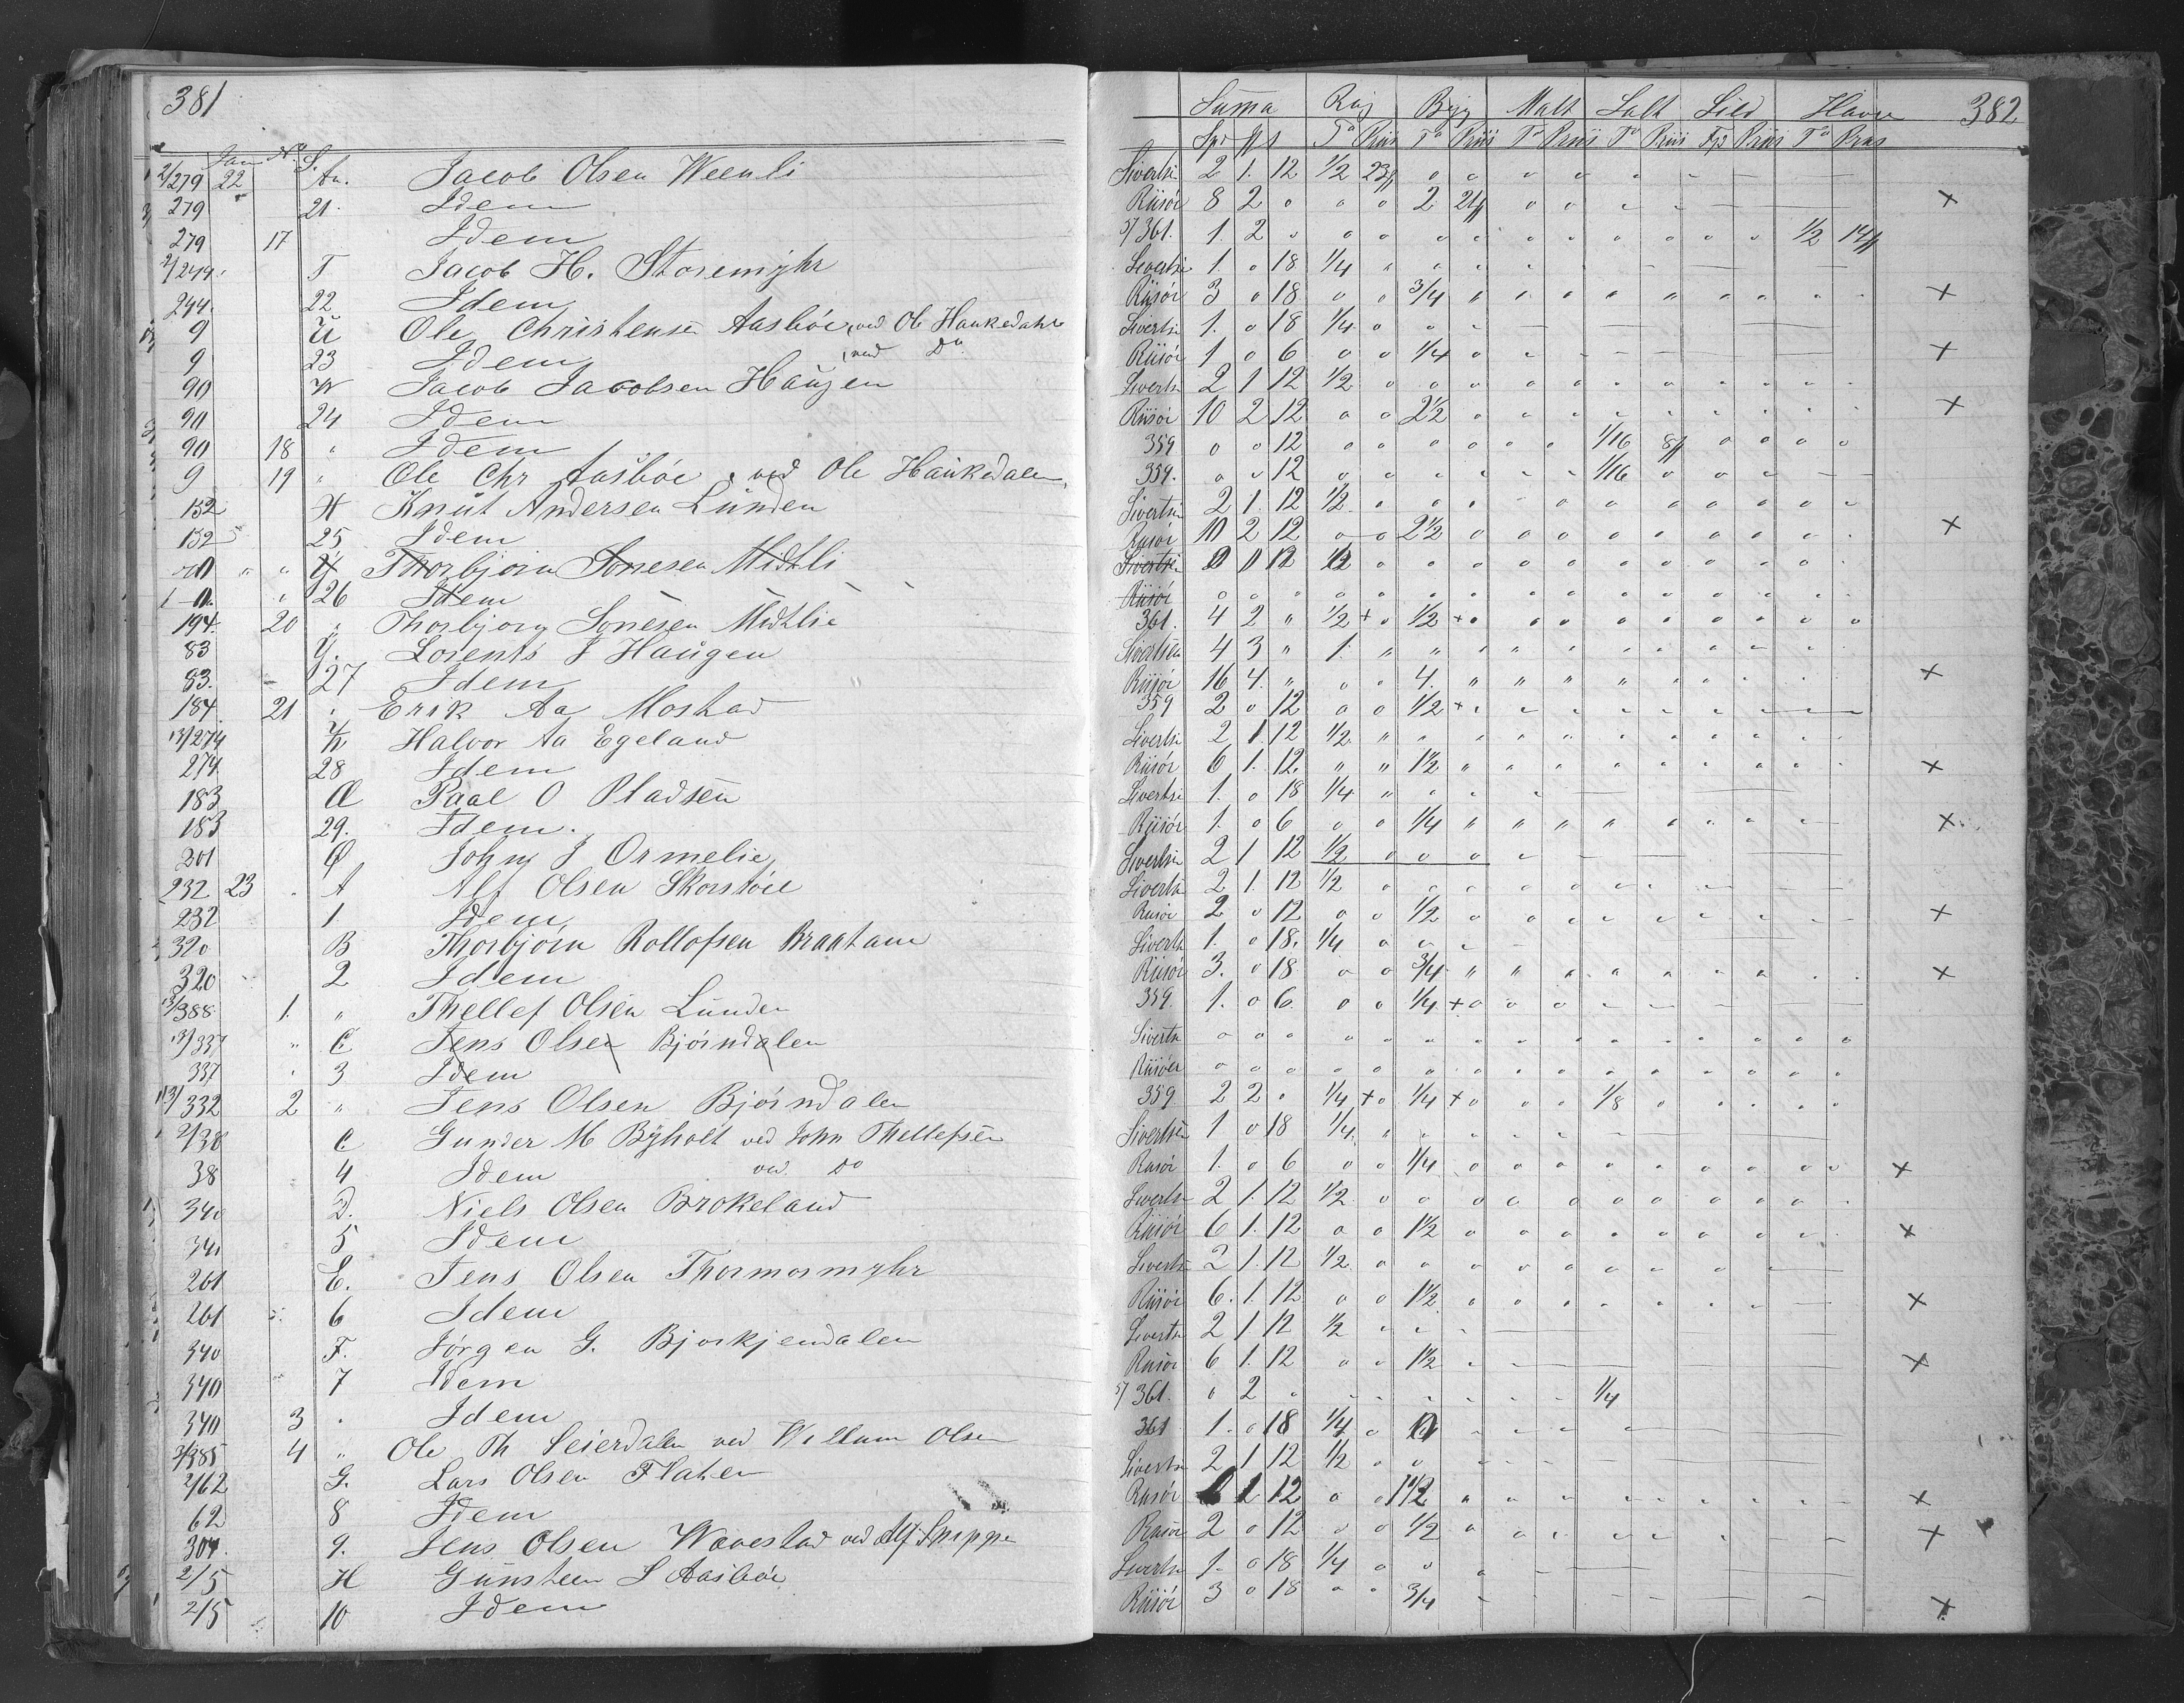 381
Jan No S.
2/279 22 An. Jacob Olsen Weenli
279 21. Idem
279 17 Idem
2/244 T Jacob H. Storemyhr
244. 22 Idem
9 U Ole Christensen Aasbøe, ved Ole Haukedahl
9 23 Idem, ved Do
90 W Jacob Jacobsen Haugen
90 24 Idem
90 18 " Idem
9 19 " Ole Chr Aasbøe, ved Ole Haukedalen,
152 X Knut Andersen Lunden
152 25 Idem
" " Y Thorbjørn Sonesen Midtli
" 26 Idem
194. 20 " Thorbjørn Sonesen Midtlie
83 Y. Lorents J Haugen
83. 27 Idem
184 21 " Erik Aa Mostad
13/274 Halvor Aa Egeland
274 28 Idem
183 Æ Paal O Pladsen
183 29. Idem.
201 Ø John J Ormelie
232 23 A Alf Olsen Skorstøle
232 1 Idem
320 B Thorbjørn Rollofsen Braatane
320 2 Idem
13/388 1. " Thellef Olsen Lunden
13/337 " C Jens Olsen Bjørndalen
337 " 3 Idem
13/332 2 " Jens Olsen Bjørndalen
2/38 C Gunder M Byholt ved John Thellefsen
38 4 Idem ved Do
340 D. Niels Olsen Brokeland
340 5 Idem
261 E. Jens Olsen Thormormyhr
261 6 Idem
340 F. Jørgen G. Bjorkjendalen
340 7 Idem
340 3 " Idem
2/385 4 " Ole Th Seierdalen ved Willum Olsen
2/62 G. Lars Olsen Flaten
62 8 Idem
304. 9. Jens Olsen Wovestad ved Alf Snippe
2/5 H Gunsteen S Aasbøe
2/5 10 Idem
382
Suma Rug Byg Malt Salt Sild Havre
Spd ß Tø Priis Tø Priis Tø Priis Tø Priis Fjd Priis Tø Priis
Sivertsen 2 1. 12 1/2 23ß o o o o o
Riisør 8 2 o o o 2 21ß o o × 
5/361. 1. 2 o o o o o o o o o o o 1/2 14ß
Sivertsen 1. o 18 1/4
Riisør 3 o 18 o o 3/4 ×
Sivertsen 1. o 18 1/4 o
Riisør 1 o 6 o o 1/4 o ×
Sivertsen 2 1 12 1/2 o
Riisør 10 2 12 o o 2 1/2 ×
359 o o 12 o o o o o o 1/16 8ß o o o o
359. o o 12 o o 1/16 o o
Sivertsen 2 1. 12 1/2
Riisør 10 2 12 o o 2 1/2 o o o o o o o ×
Sivertsen 1/2 o o o o o o
Riisør o o o o o o o o
361. 4 2 " 1/2 + o 1/2 + o o o o o o o o o
Sivertsen 4 3 " 1. " " "
Riisør 16 4. " o o 4. " " " " ×
359 2 o 12 o o 1/2 +
Sivertsen 2 1. 12 1/2 "
Riisør 6 1. 12. " " 1 1/2 " ×
Sivertsen 1. o 18 1/4 "
Riisør 1. o 6 o o 1/4 " " " " ×
Sivertsen 2 1 12 1/2 o o o
Sivertsen 2 1. 12 1/2 o
Riisør 2 o 12 o o 1/2 o ×
Sivertsen 1. o 18. 1/4 o
Riisør 3. o 18 o o 3/4 " " ×
359. 1. o 6 o o 1/4 + o o o
Sivertsen o o o o o
Riisøer o o o o o
359 2 2 o 1/4 + o 1/4 + o o o 1/8 o
Sivertsen 1 o 18 1/4 "
Riisør 1. o 6 o o 1/4 o o o o o o o o o ×
Sivertsen 2 1. 12 1/2 o o o o o o o o o
Riisør 6 1. 12 o o 1 1/2 o o o o ×
Sivertsen 2 1. 12 1/2 o o o o o
Riisør 6. 1. 12 o o 1 1/2 o o ×
Sivertsen 2 1 12 1/2
Riisør 6 1. 12 o o 1 1/2 ×
5/361. o 2 o 1/4
361 1. o 18 1/4 o
Sivertsen 2 1 12 1/2 o o
Riisør 1 12 o o 1 1/2 " ×
Riisør 2 o 12 o o 1/2 o ×
Sivertsen 1. o 18 1/4 o o
Riisør 3 o 18 3/4 ×